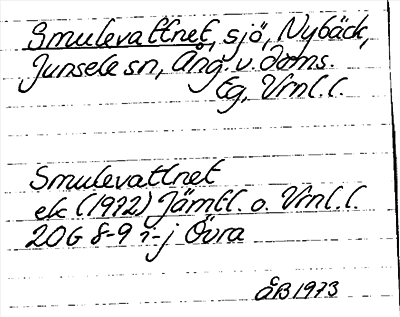 Smulevattnet, sjö, Nybäck,
Junsele sn, Ång. v. doms.
Eg, Vrnl. l.
Smulevattnet
ek (1972) Jämtl. o. Vrnl. l.
20G 8-9 i-j Övra
ÅB 1973